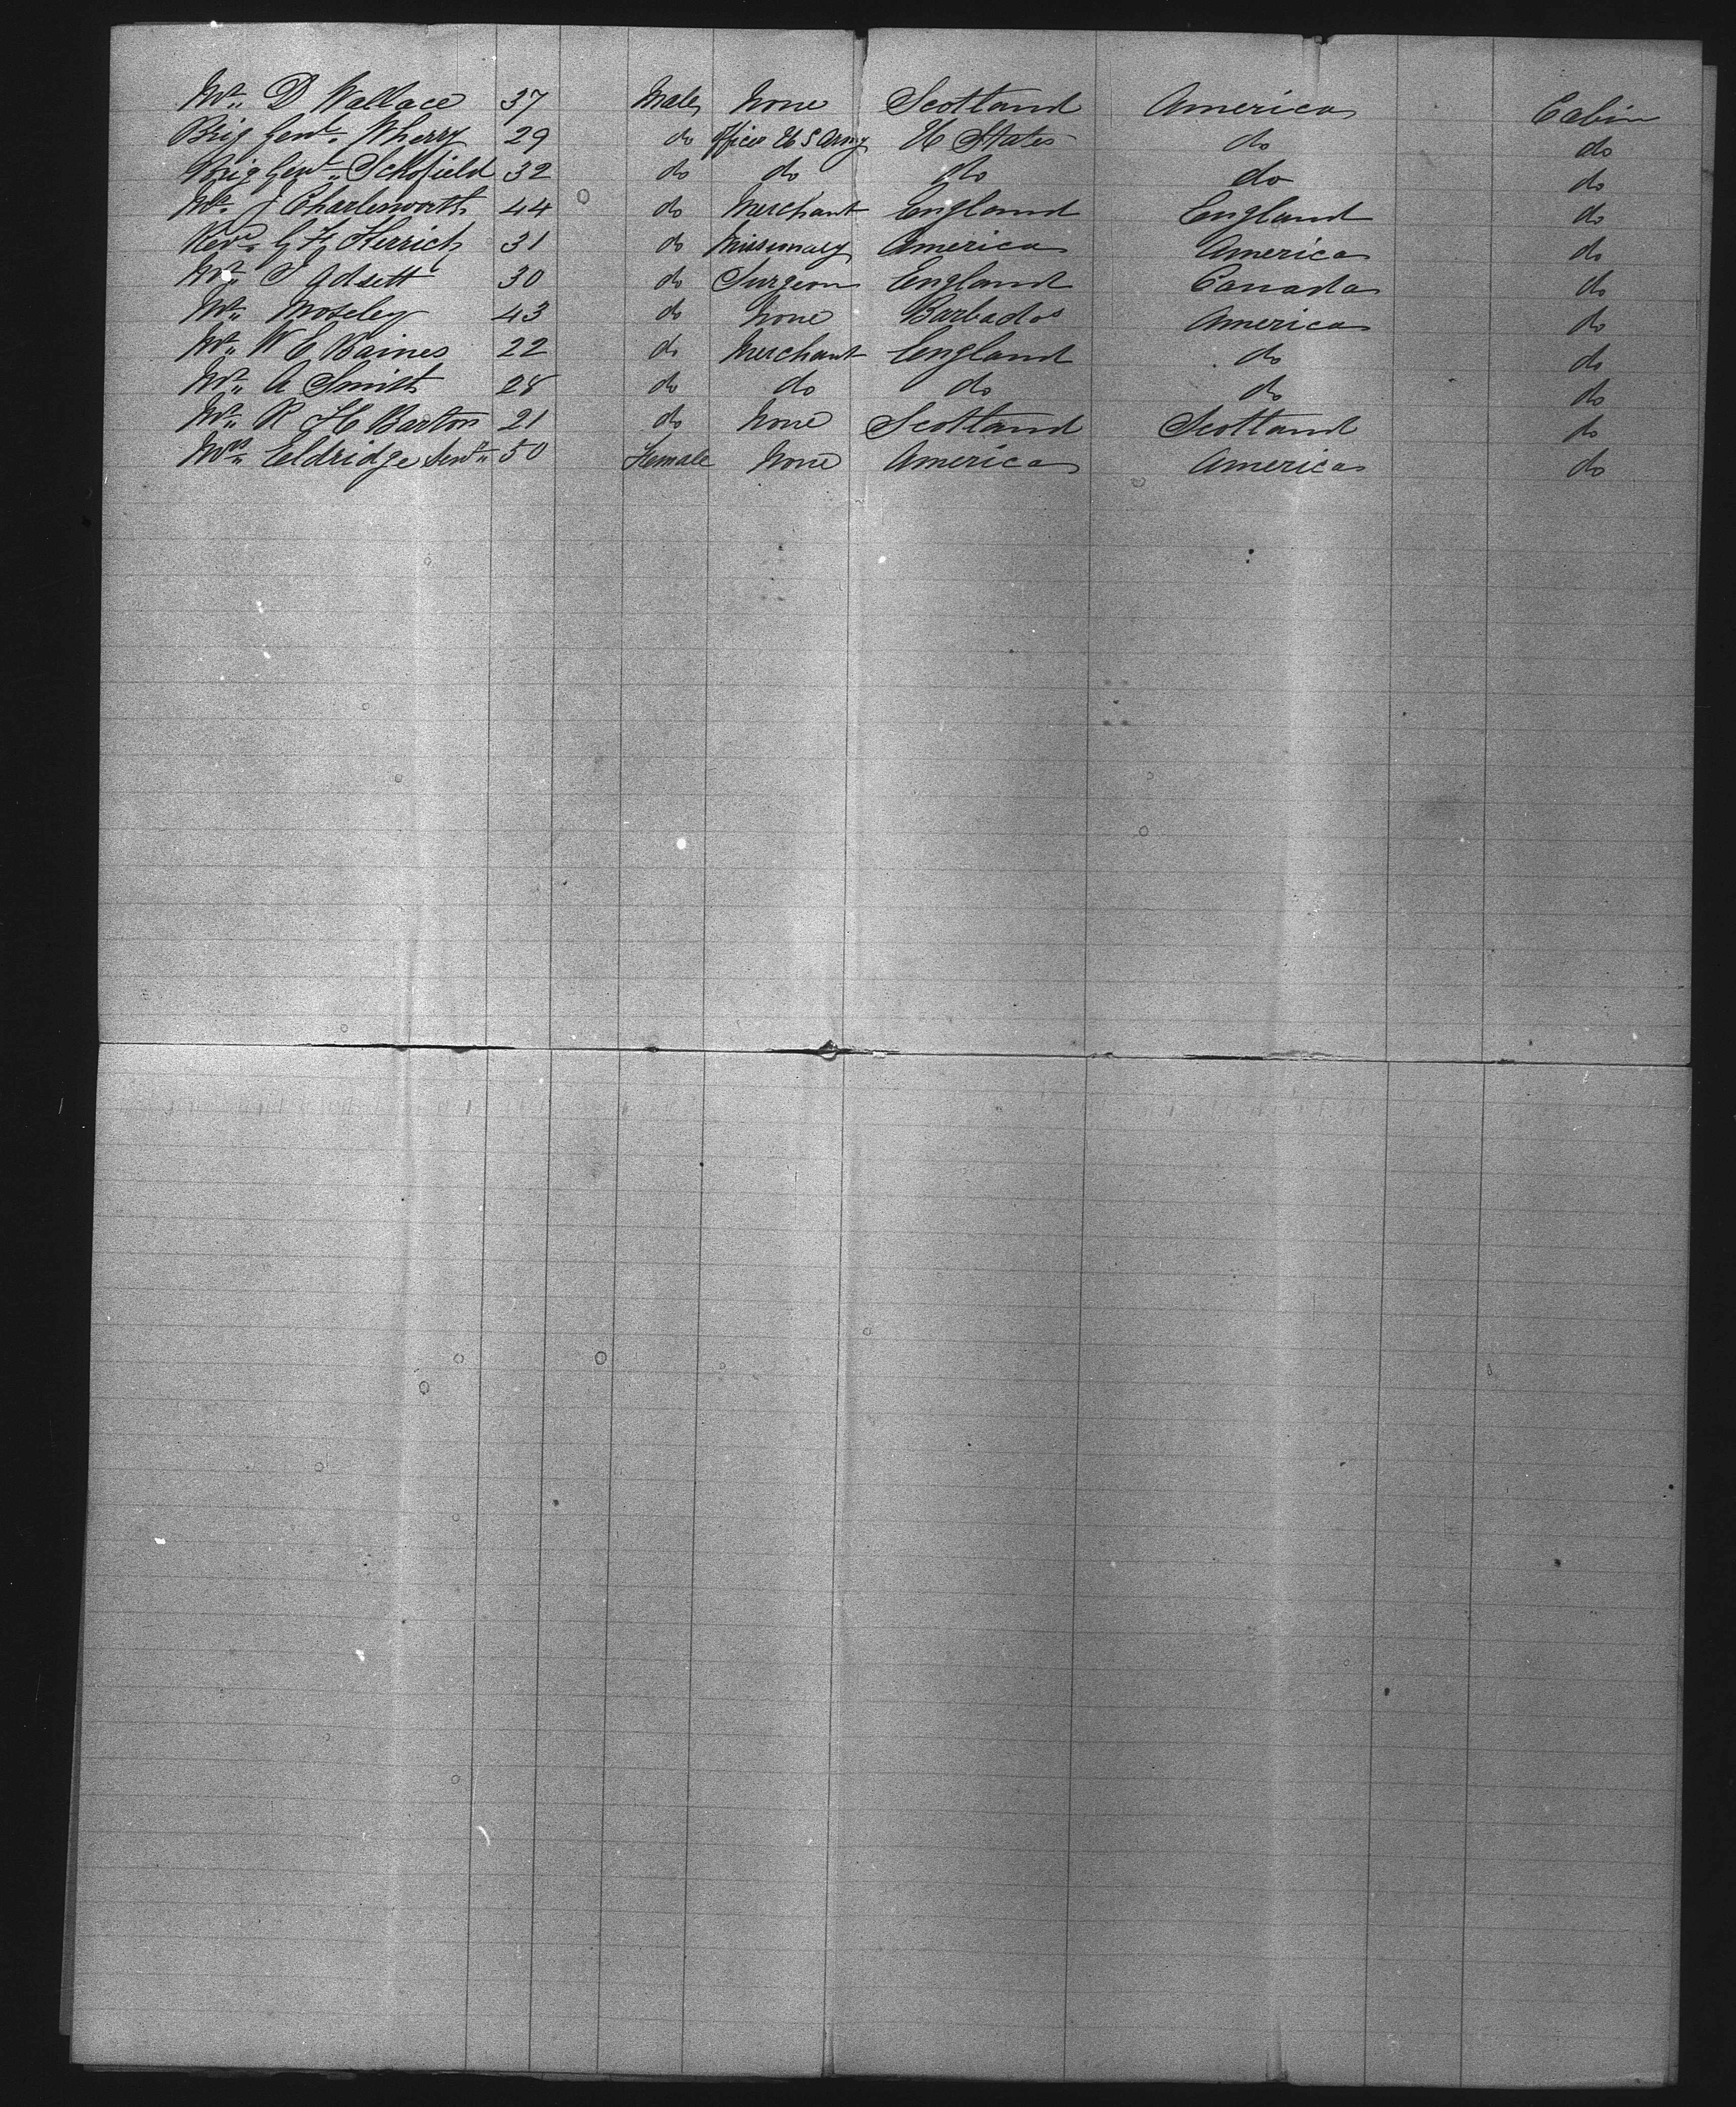 Mr. D Wallace 37 Male None Scotland America Cabin
Brig Genl. Wherry 29 do Officer U S Army U States do do
Brig Genl. Schofield 32 do do do do do
Mr. J Charlesworth 44 do Merchant England England do
Revd. G F Herrick 31 do Missionary America America do
Mr. J Adsett 30 do Surgeon England Canada do
Mr. Moseley 43 do None Barbados America do
Mr. W E Baines 22 do Merchant England do do
Mr. A Smith 28 do do do do do
Mr. R H Barton 21 do None Scotland Scotland do
Mrs. Eldridge Senr. 50 Female None America America do